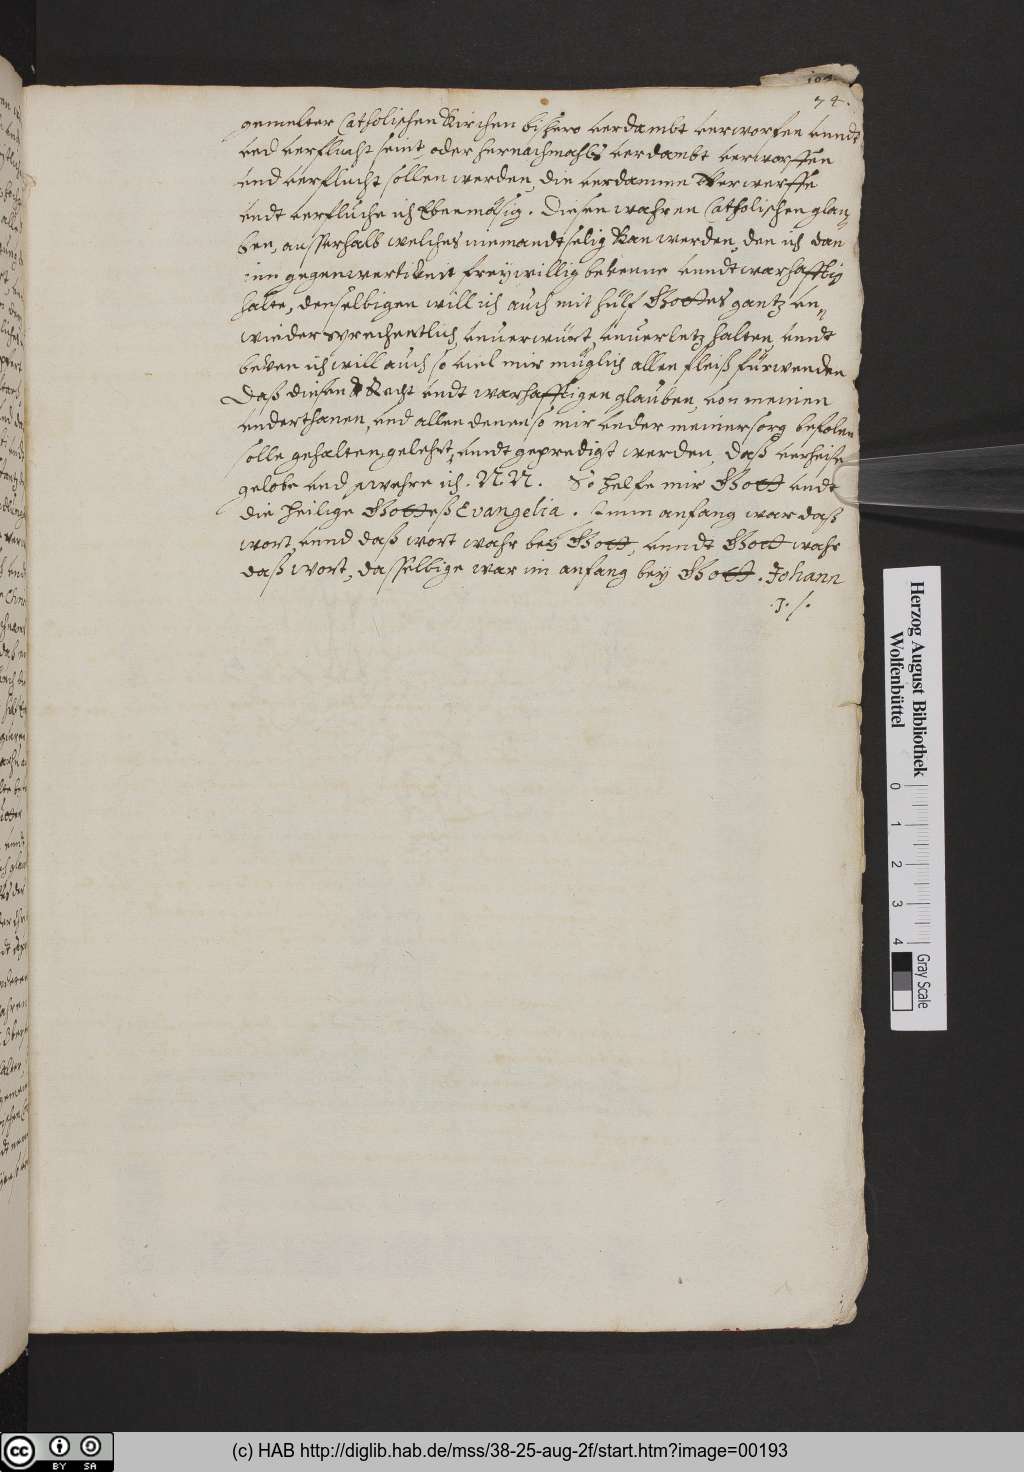 104.
74.
gemelter Catholischen Kirchen bißhero verdambt verworfen unndt
und verflucht seint, oder hernachmahls verdambt verworffen
und verflucht sollen werden, die verdamme verwerffe
undt verfluche ich Ebenmäsig. Diesen wahren Catholischen glau-
ben, ausserhalb welches niemandt selig kan werden, den ich dan
inn gegenwertikeit freywillig bekenne unndt warhafftig
halte, denselbigen will ich auch mit hülf Gottes gantz un-
wiedersprechentlich, unverwürt, unverletz halten, undt
beken ich will auch so viel mir müglich allen fleiß fürwenden
Daß diesen Recht undt warhafftigen glauben, von meinen
underthanen, und allen denen so mir under meiner sorg befolen
solle gehalten, gelehrt, unndt gepredigt werden, daß verheise
gelobe und schwehre ich. N. N. So helfe mir Gott undt
die heilige Gotteß Evangelia. Imm anfang war daß
wort, unnd daß wort wahr bey Gott, unndt Gott wahr
daß wort, dasselbige war im anfang bey Gott. Johann
.1.
Herzog August Bibliothek
Wolfenbüttel
0 1 2 3 4
Gray Scale
cc BY SA
(c) HAB http://diglib.hab.de/mss/38-25-aug-2f/start.htm?image=00193